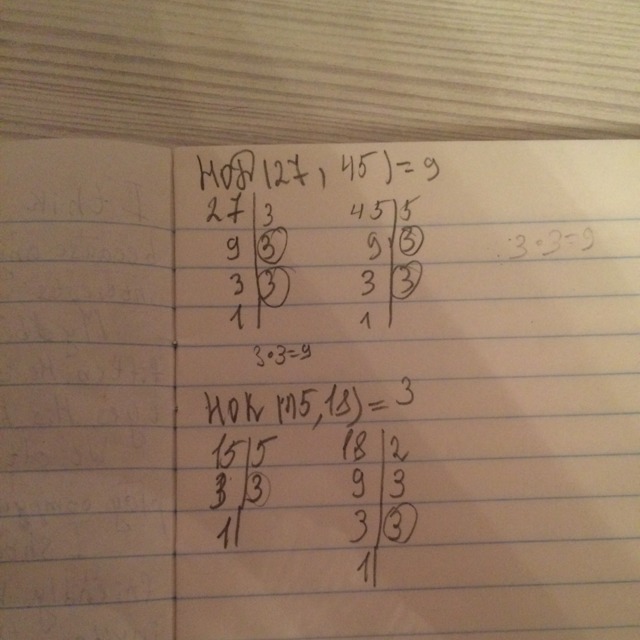 НОД (27, 45) = 9
27 | 3 45 | 5
9 | 3 9 | 3 3·3=9
3 | 3 3 | 3
1 | 1 |
3·3=9
НОК (15, 18) = 3
15 | 5 18 | 2
3 | 3 9 | 3
1 | 3 | 3
1 |